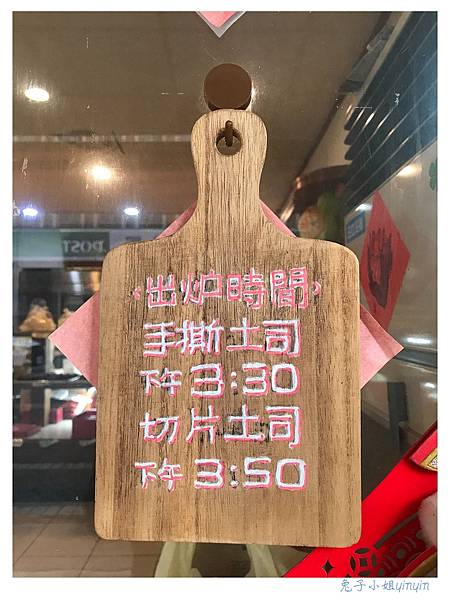 <出炉時間>
手撕土司
下午3:30
切片土司
下午3:50
POST
兔子小姐yinyin